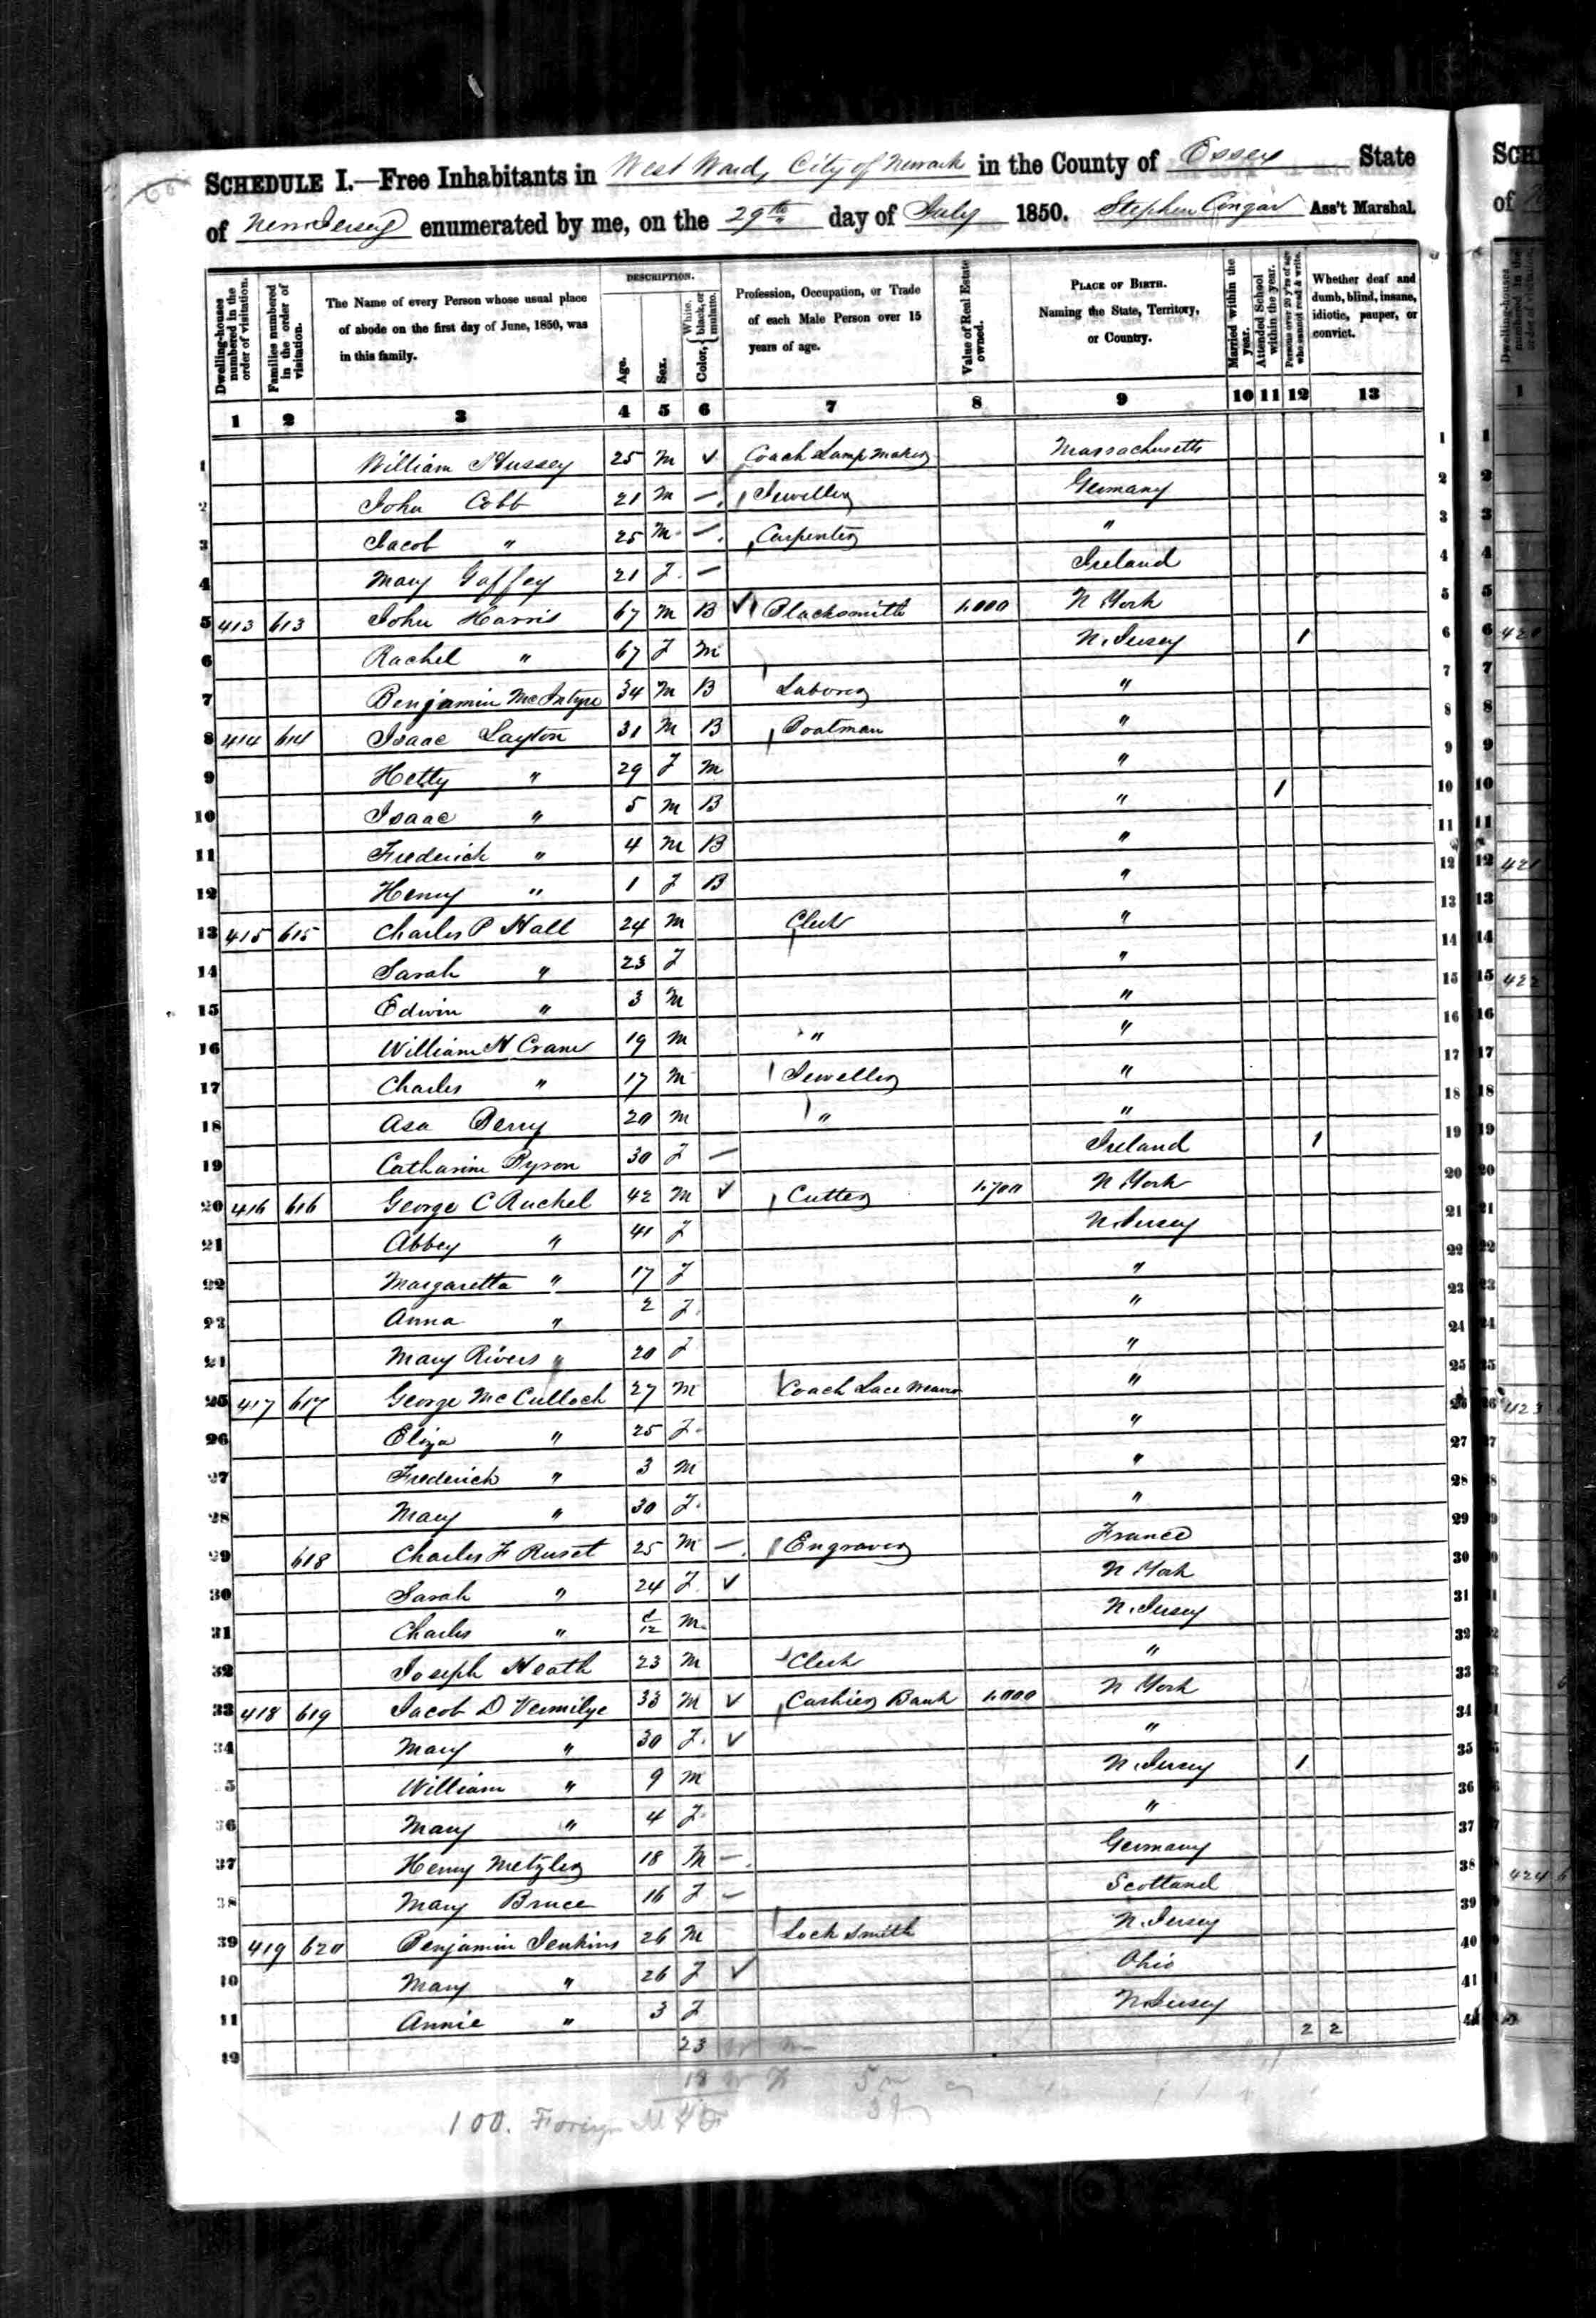 SCHEDULE I.—Free Inhabitants in West Ward, City of Newark in the County of Essex State
of New Jersey enumerated by me, on the 29th day of July 1850. Stephen Congar Ass't Marshal.
Dwelling-houses numbered in the order of visitation.
Families numbered in the order of visitation.
The Name of every Person whose usual place of abode on the first day of June, 1850, was in this family.
DESCRIPTION.
Age.
Sex.
Color, { White, black, or mulatto.
Profession, Occupation, or Trade of each Male Person over 15 years of age.
Value of Real Estate owned.
PLACE OF BIRTH. Naming the State, Territory, or Country.
Married within the year.
Attended School within the year.
Persons over 20 y'rs of age who cannot read & write.
Whether deaf and dumb, blind, insane, idiotic, pauper, or convict.
1 2 3 4 5 6 7 8 9 10 11 12 13
1 William Hussey 25 M ✓ Coach Lamp Maker Massachusetts 1
2 John Cobb 21 M – Jeweller Germany 2
3 Jacob " 25 M – Carpenter " 3
4 Mary Gaffey 21 F – Ireland 4
5 413 613 John Harris 67 M B ✓ Blacksmith 1.000 N York 5
6 Rachel " 67 F M N. Jersey 1 6
7 Benjamin McIntyre 34 M B Laborer " 7
8 414 614 Isaac Layton 31 M B Boatman " 8
9 Hetty " 29 F M " 9
10 Isaac " 5 M B " 1 10
11 Frederick " 4 M B " 11
12 Henry " 1 F B " 12
13 415 615 Charles P Hall 24 M Clerk " 13
14 Sarah " 23 F " 14
15 Edwin " 3 M " 15
16 William H Crane 19 M " " 16
17 Charles " 17 M Jeweller " 17
18 Asa Perry 20 M " " 18
19 Catharine Ryson 30 F – Ireland 1 19
20 416 616 George C Ruckel 42 M ✓ Cutter 1.700 N York 20
21 Abbey " 41 F N. Jersey 21
22 Margaretta " 17 F " 22
23 Anna " 2 F " 23
24 Mary Rivers " 20 F " 24
25 417 617 George McCulloch 27 M Coach Lace " 25
26 Eliza " 25 F " 26
27 Frederick " 3 M " 27
28 Mary " 30 F " 28
29 618 Charles F Ruset 25 M – Engraver France 29
30 Sarah " 24 F ✓ N York 30
31 Charles " M N. Jersey 31
32 Joseph Heath 23 M Clerk " 32
33 418 619 Jacob D Vermilye 33 M ✓ Cashier Bank 1.000 N York 33
34 Mary " 30 F ✓ " 34
35 William " 9 M N. Jersey 1 35
36 Mary " 4 F " 36
37 Henry Metzler 18 M – Germany 37
38 Mary Bruce 16 F – Scotland 38
39 419 620 Benjamin Jenkins 26 M Lock Smith N. Jersey 39
40 Mary " 26 F ✓ Ohio 40
41 Annie " 3 F N. Jersey 41
23 2 2
18
100. Foreign